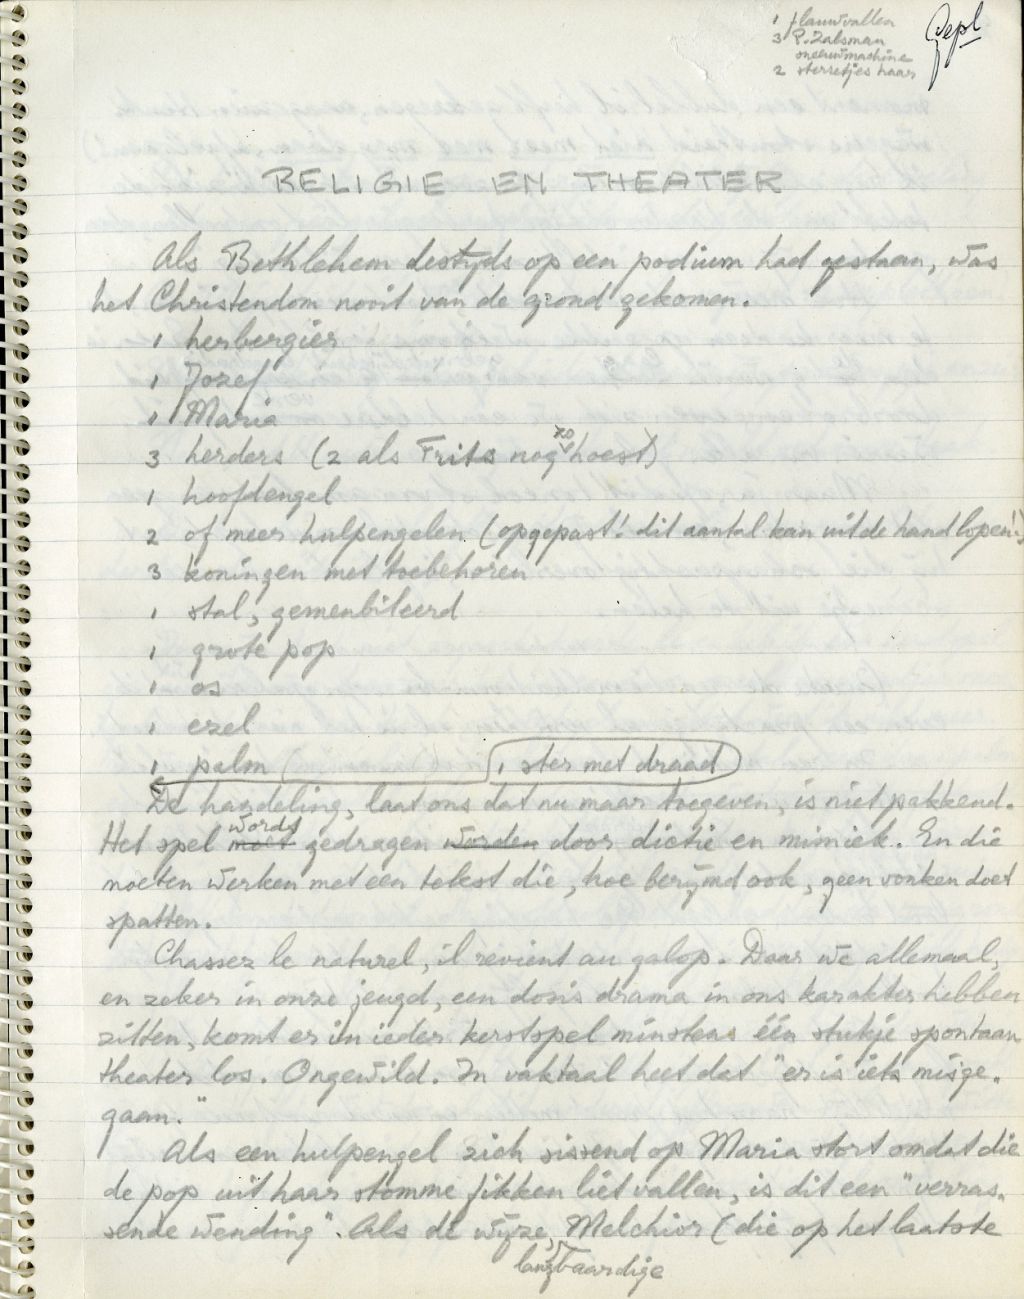 1 flauwvallen
3 P. Zalsman
sneeuwmachine
2 sterretjes haar
Gepl
RELIGIE EN THEATER
Als Bethlehem destijds op een podium had gestaan, was
het Christendom nooit van de grond gekomen.
1 herbergier
1 Jozef
1 Maria
3 herders (2 als Frits nog zo hoest)
1 hoofdengel
2 of meer hulpengelen (opgepast! dit aantal kan uit de hand lopen!)
3 koningen met toebehoren
1 stal, gemeubileerd
1 grote pop
1 os
1 ezel
1 palm 1 ster met draad
De handeling, laat ons dat nu maar toegeven, is niet pakkend.
Het spel moet wordt gedragen worden door dictie en mimiek. En die
moeten werken met een tekst die, hoe berijmd ook, geen vonken doet
spatten.
Chassez le naturel, il revient au galop. Daar we allemaal,
en zeker in onze jeugd, een dosis drama in ons karakter hebben
zitten, komt er in ieder kerstspel minstens één stukje spontaan
theater los. Ongewild. In vaktaal heet dat "er is iets misge-
gaan."
Als een hulpengel zich sissend op Maria stort omdat die
de pop uit haar stomme fikken liet vallen, is dit een "verras-
sende wending". Als de wijze, langbaardige Melchior (die op het laatste